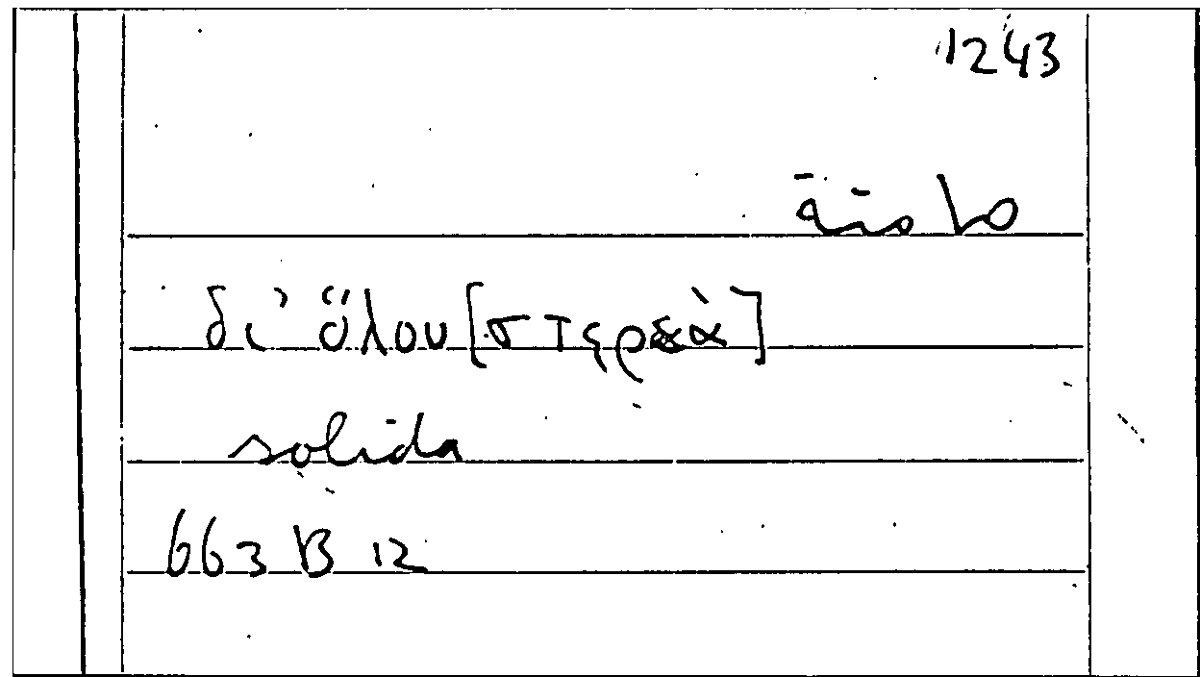 1243
δι’ ὅλου [στερεὰ]
solida
663 B 12